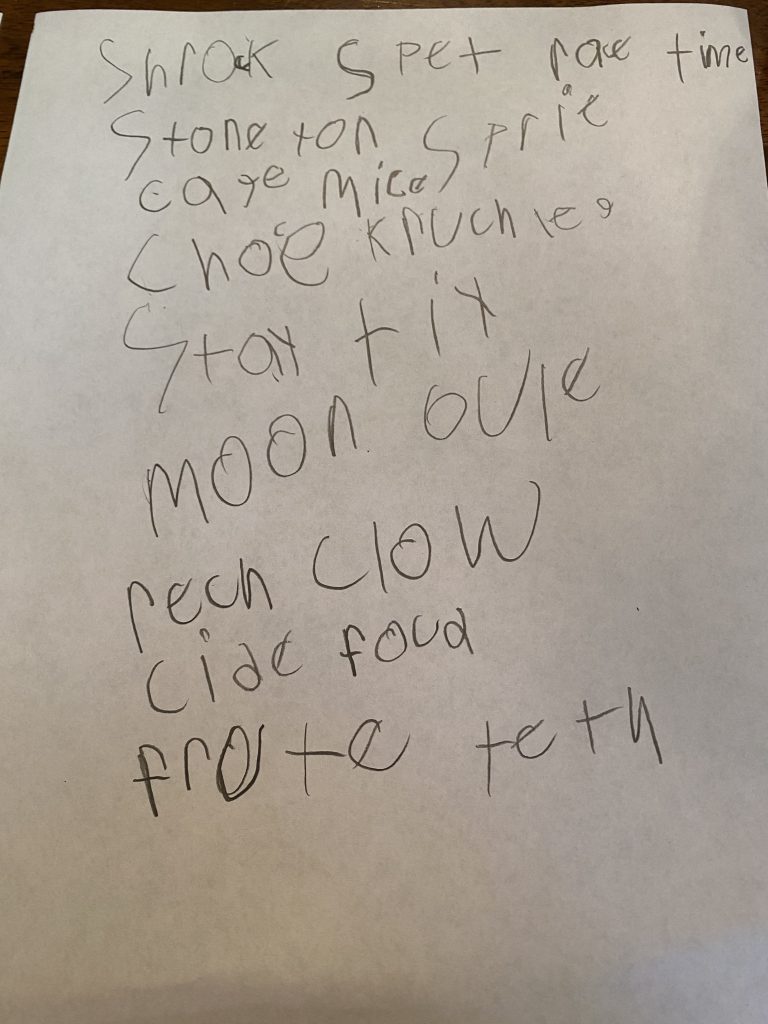 Shrock Spet race time
Stone ton Sprie
cage mice
Choe kruchle
Stay tix
moon oule
pech clow
cide foud
frote teth